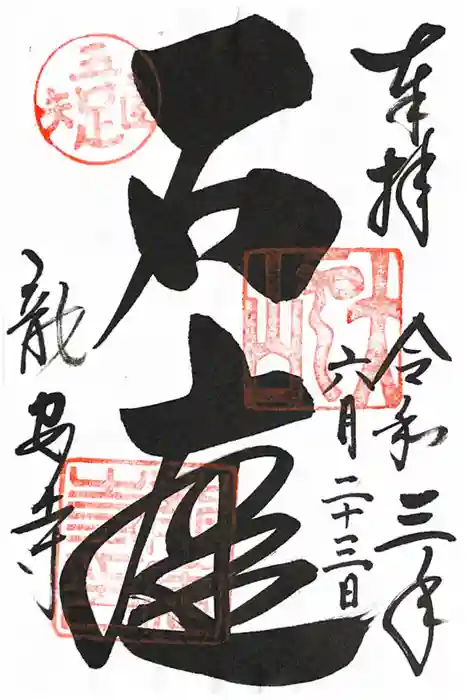 奉拝
令和三年
六月二十三日
石庭
龍安寺